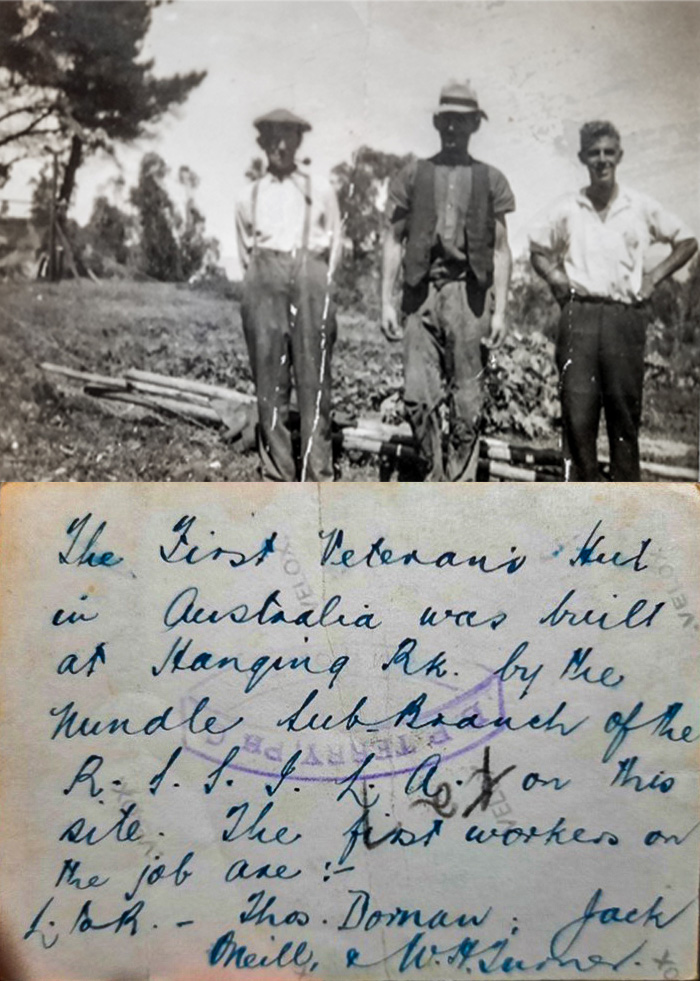 The First Veterans Hut
in Australia was built
at Hanging Rk. by the
Nundle Sub-Branch of the
R. S. S. I. L. A. on this
site. The first workers on
the job are :-
L to R. - Thos. Dornan, Jack
Oneill, & W. H. Turner.
VELOX
VELOX
VELOX
VELOX